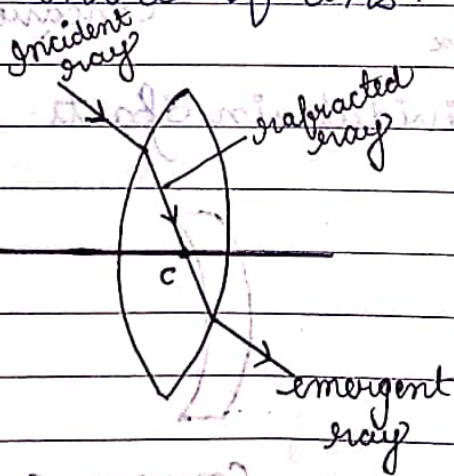 of lens.
Incident
ray
rafracted
ray
C
emergent
ray